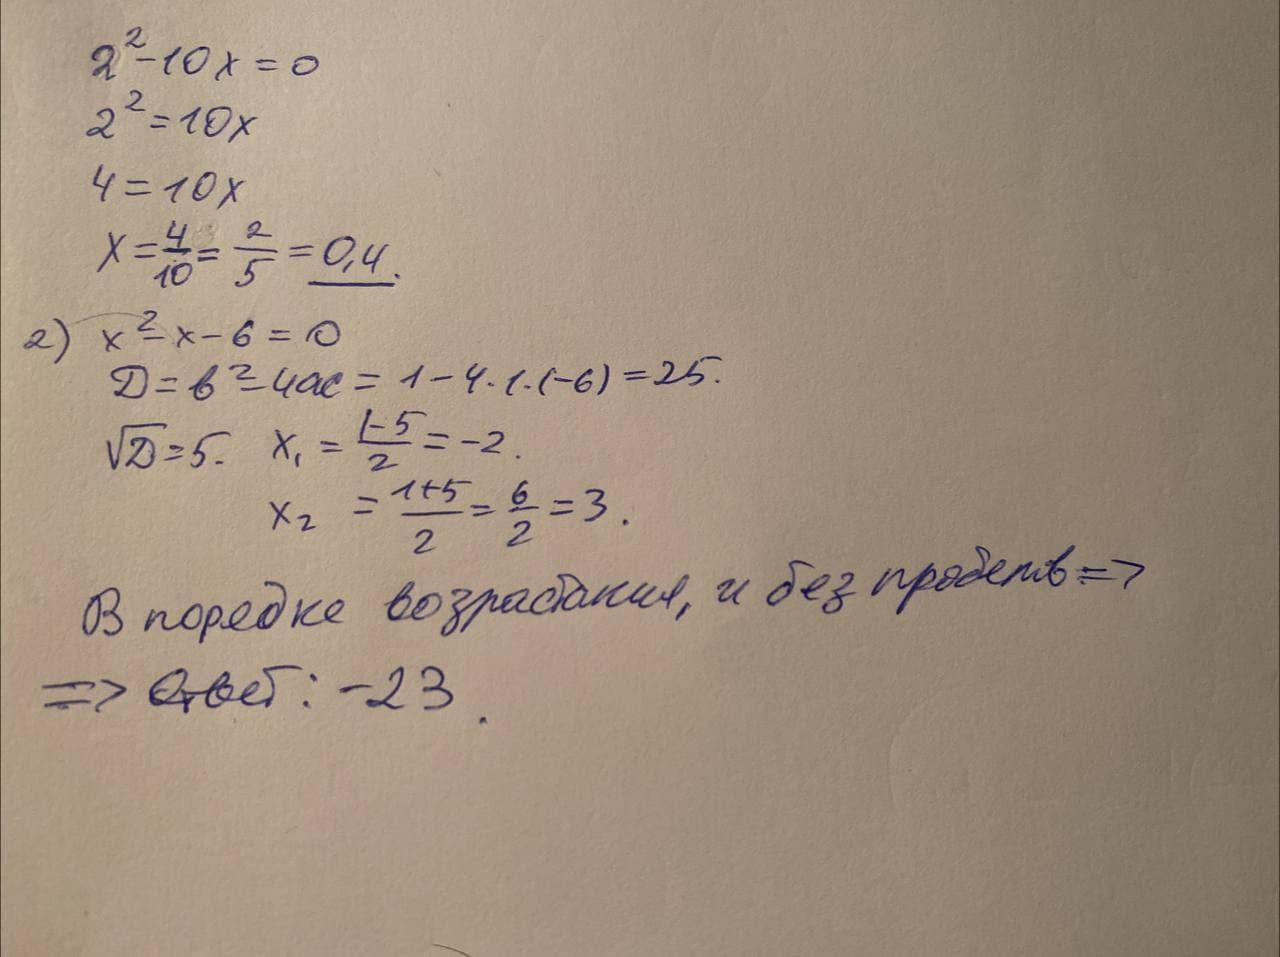 2²-10x=0
2²=10x
4=10x
x=4/10=2/5=0,4.
2) x²-x-6=0
D=b²-4ac=1-4·1·(-6)=25.
√D=5. x₁=1-5/2=-2.
x₂=1+5/2=6/2=3.
В порядке возрастания, и без пробелов=>
=> Ответ: -23.